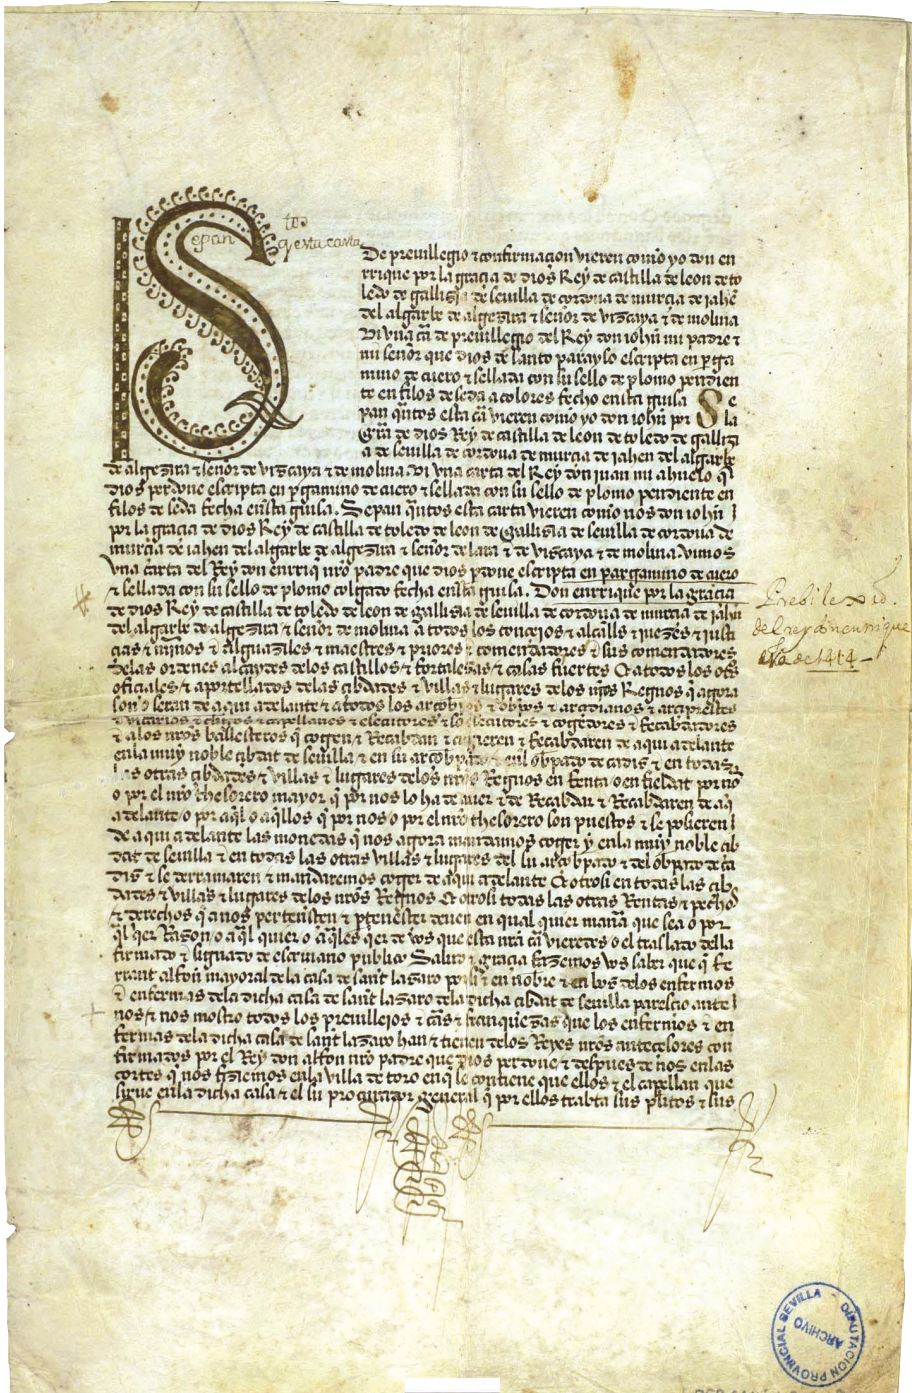 Sepan tos
qesta carta
De preuillegio & confirmaçion vieren como yo don en
rrique por la graçia de dios Rey de castilla de leon de to
ledo de gallizia de seuilla de cordoua de murçia de jahen
del algarbe de algezira & señor de vizcaya & de molina
Vi vna cã de preuillegio del Rey don johñ mi padre &
mi señor que dios de santo parayso escripta en p̃ga
mino de cuero & sellada con su sello de plomo pendien
te en filos de seda a colores fecho en esta guisa Se
pan q̃ntos esta cã vieren como yo don johñ por la
Grã de dios Rey de castilla de leon de toledo de gallizi
a de seuilla de cordoua de murçia de jahen del algarbe
de algezira & señor de vizcaya & de molina Vi vna carta del Rey don juan mi ahuelo q̃
dios perdone escripta en p̃gamino de cuero & sellada con su sello de plomo pendiente en
filos de seda fecha en esta guisa. Sepan q̃ntos esta carta vieren como nos don johñ
por la graçia de dios Rey de castilla de toledo de leon de Gallizia de seuilla de cordoua de
murçia de jahen del algarbe de algezira & señor de lara & de vizcaya & de molina vimos
vna carta del Rey don enrriq̃ nr̃o padre que dios p̃done escripta en pargamino de cuero
& sellada con su sello de plomo colgado fecha en esta guisa. Don enrrique por la graçia
de dios Rey de castilla de toledo de leon de gallizia de seuilla de cordoua de murçia de jahñ
del algarbe de algezira & señor de molina a todos los conçejos & alcalls & juezes & justi
çias & & alguaziles & maestres & priores & comendadores & sus comendadores
delas ordenes alcaydes delos castillos & fortalezas & casas fuertes & a todos los ots̃
ofiçiales & aportellados delas çibdades & villas & lugares delos nr̃os Regnos q̃ agora
son o seran de aqui adelante & a todos los & obp̃os & arçidianos & arçiprestes
& vicarios & & capellanes & esecutores & & cogedores & Recabdadores
& alos nr̃os ballesteros q̃ cogen & Recabdan & cogieren & Recabdaren de aqui adelante
en la muy noble çibdat de seuilla & en su arçobp̃ado & enl obp̃ado de cadis & en todas
las otras çibdades & villas & lugares delos nr̃os Regnos en Renta o en fieldat por nos
o por el nr̃o thesorero mayor q̃ por nos lo ha de auer & de Recabdar & Recabdaren de aq̃
adelante o por aq̃l o aq̃llos q̃ por nos o por el nr̃o thesorero son puestos & se posieren
de aqui adelante las monedas q̃ nos agora mandamos coger y en la muy noble çib
dat de seuilla & en todas las otras villas & lugares del su arçobp̃ado & del obp̃ado de ca
dis & se derramaren & mandaremos coger de aqui adelante & otrosi en todas las çib
dades & villas & lugares delos nr̃os Regnos & otrosi todas las otras Rentas & pechos
& derechos q̃ anos pertensçen & p̃tenesçer deuen en qual quier mañã que sea o por
q̃l q̃er Razon o a q̃l quier o a q̃les q̃er de vos que esta nr̃a cã vieredes o el traslado della
firmado & signado de escriuano publico Salud & graçia fazemos vos saber que q̃ fe
rrant alfoñ mayoral de la casa de sant lazaro por si & en nobre & en boz delos enfermos
& enfermas dela dicha casa de sant lazaro dela dicha çibdat de seuilla paresçio ante
nos & nos mostro todos los preuillejos & cãs & franquezas que los enfermos & en
fermas dela dicha casa de sant lazaro han & tienen delos Reyes nr̃os anteçesores con
firmados por el Rey don alfon nr̃o padre que dios perdone & despues de nos enlas
cortes q̃ nos fiziemos enla villa de toro en q̃ se contiene que ellos & el capellan que
sigue enla dicha casa & el su procurador general q̃ por ellos trabta sus pl̃itos & sus
Prebilexio
del rey don enrrique
era de 1414
DIPUTACION PROVINCIAL SEVILLA
ARCHIVO